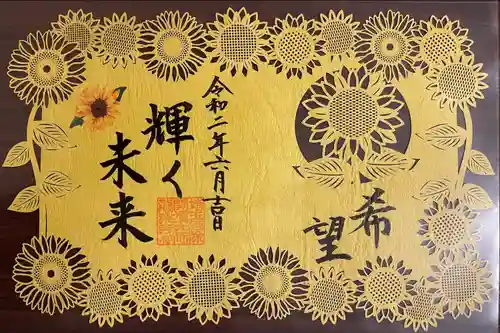 希望
令和二年六月吉日
輝く
未来